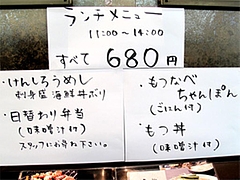 ランチメニュー
11:00〜14:00
すべて 680円
・けんしろうめし
刺身盛 海鮮丼ボリ
・日替わり弁当
(味噌汁付)
スタッフにお尋ね下さい。
・もつなべ
ちゃんぽん
(ごはん付)
・もつ丼
(味噌汁付)